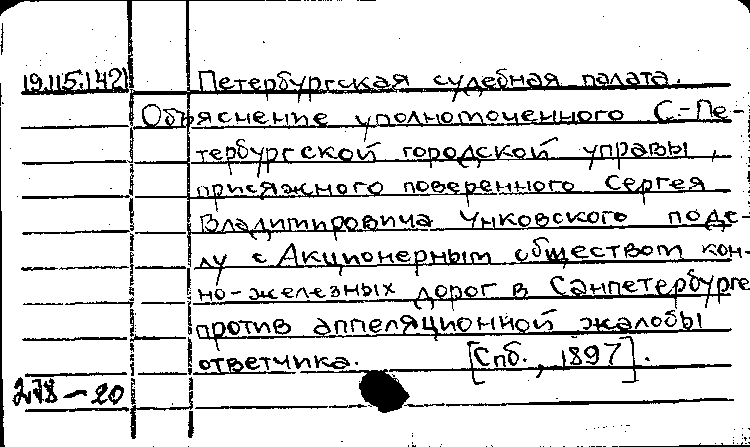 19.115.1421 Петербургская судебная палата.
Объяснение уполномоченного С.-Пе-
тербургской городской управы,
присяжного поверенного Сергея
Владимировича Унковского по де-
лу с Акционерным обществом кон-
но-железных дорог в Санпетербурге
против аппеляционной жалобы
ответчика. [Спб., 1897].
278-20